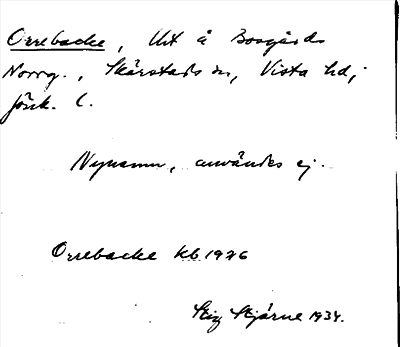 Orrebacke, Utt å Boogårds
Norrg., Skärstads sn, Vista hd,
Jönk. l.
Nynamn, användes ej.
Orrebacke kb 1926
Stig Stjärne 1934.